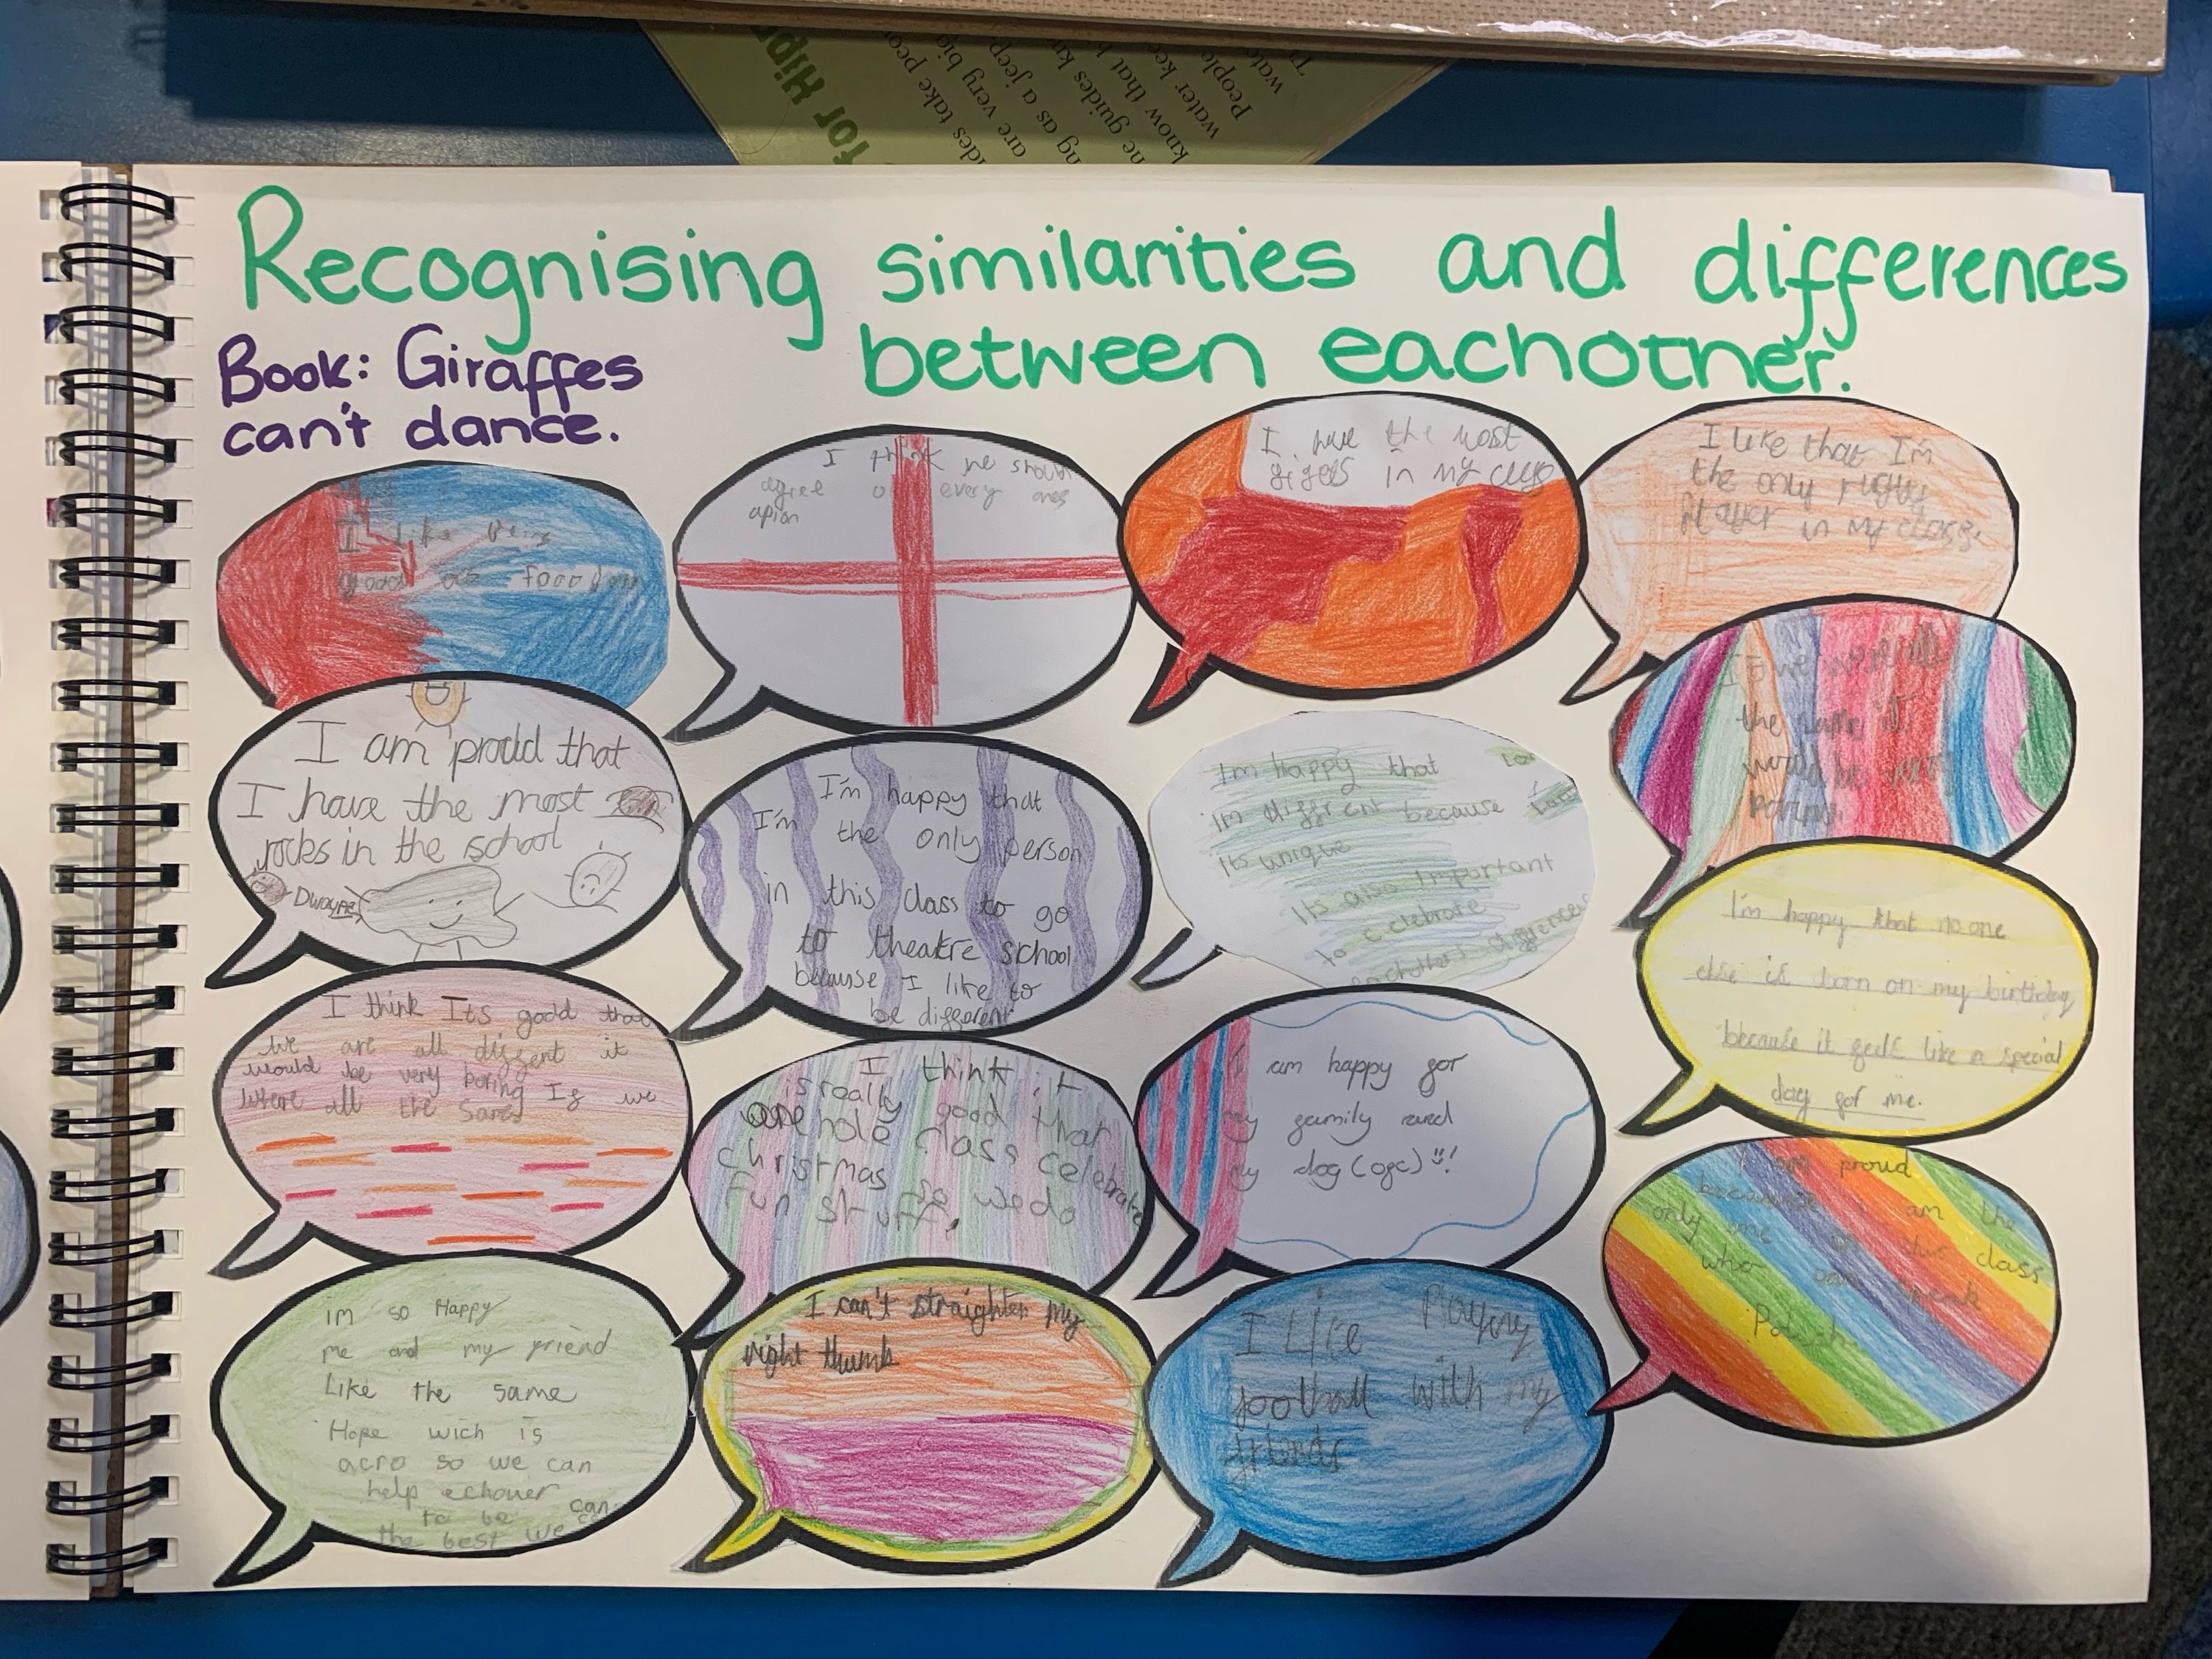 for Hip
ides take peo
are very big
ng as a jeep
ne guides kn
know that h
water
People kee
wate
Recognising similarities and differences
between eachother.
Book: Giraffes
can't dance.
I like
good at
I think we should
agree on every ones
apion
I have the most
in my
I like that I'm
the only rugby
player in my class.
I am proud that
I have the most
rocks in the school
Dwayne
I'm happy that
I'm the only person
in this class to go
to theatre school
because I like to
be different
Im Happy that
im diffrent because
its unique
Its also important
to celebrate
eachother differences
If we were all
the same it
would be very
I'm happy that no one
else is born on my birthday
because it feels like a special
day for me.
I think Its good that
We are all diffent it
would be very boring If we
where all the Same
I think it
is really good that
hole class celebrate
christmas so we do
Fun stuff.
I am happy for
my family and
my dog (ofc) !
I am proud
because I am the
only me in this class
who can speak
Polish.
im so Happy
me and my friend
Like the same
Hope wich is
acro so we can
help echouer
to be can
the best we can
I can't straighten my
right thumb
I Like Playing
football with my
friends